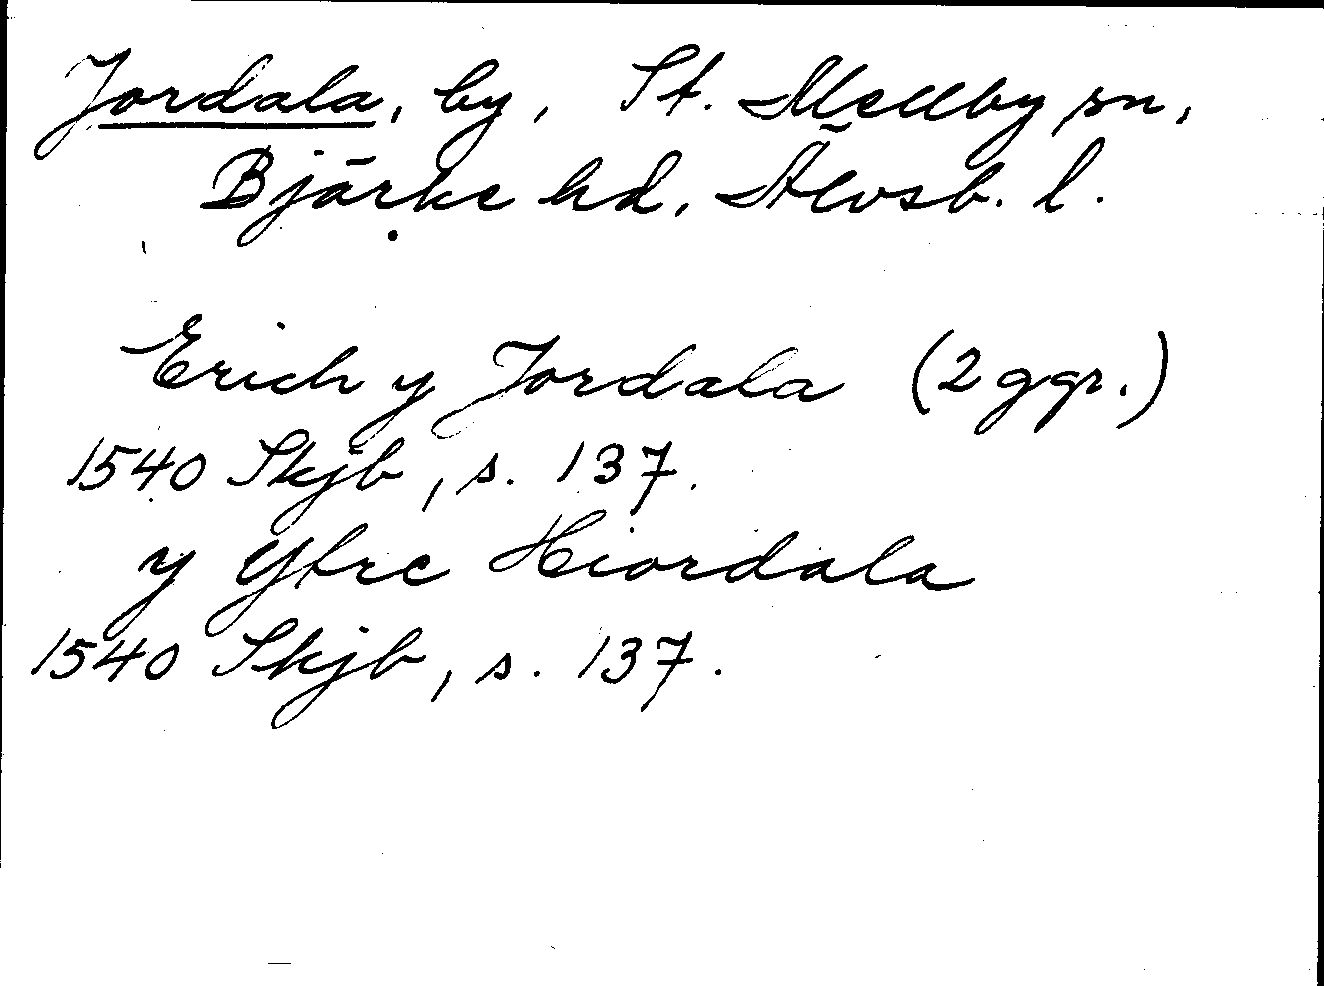 Jordala, by, St. Mellby sn,
Bjärke hd, Älvsb. l.
Erich y Jordala (2 ggr.)
1540 Skjb, s. 137.
y Ytre Hiordala
1540 Skjb, s. 137.